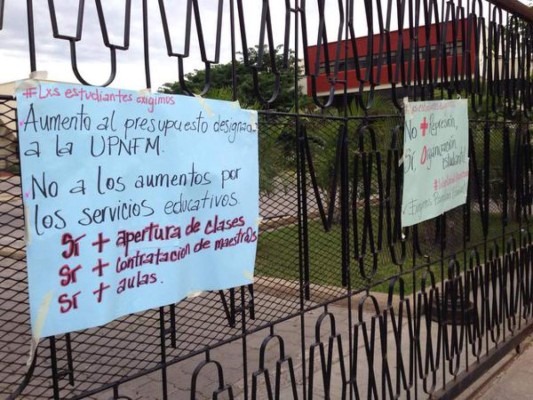 #Lxs estudiantes exigimos
Aumento al presupuesto designado
a la UPNFM.
No a los aumentos por
los servicios educativos.
Sí + apertura de clases
Sí + contratación de maestr@s
Sí + aulas.
No + represión,
Sí, Organización
estudiantil